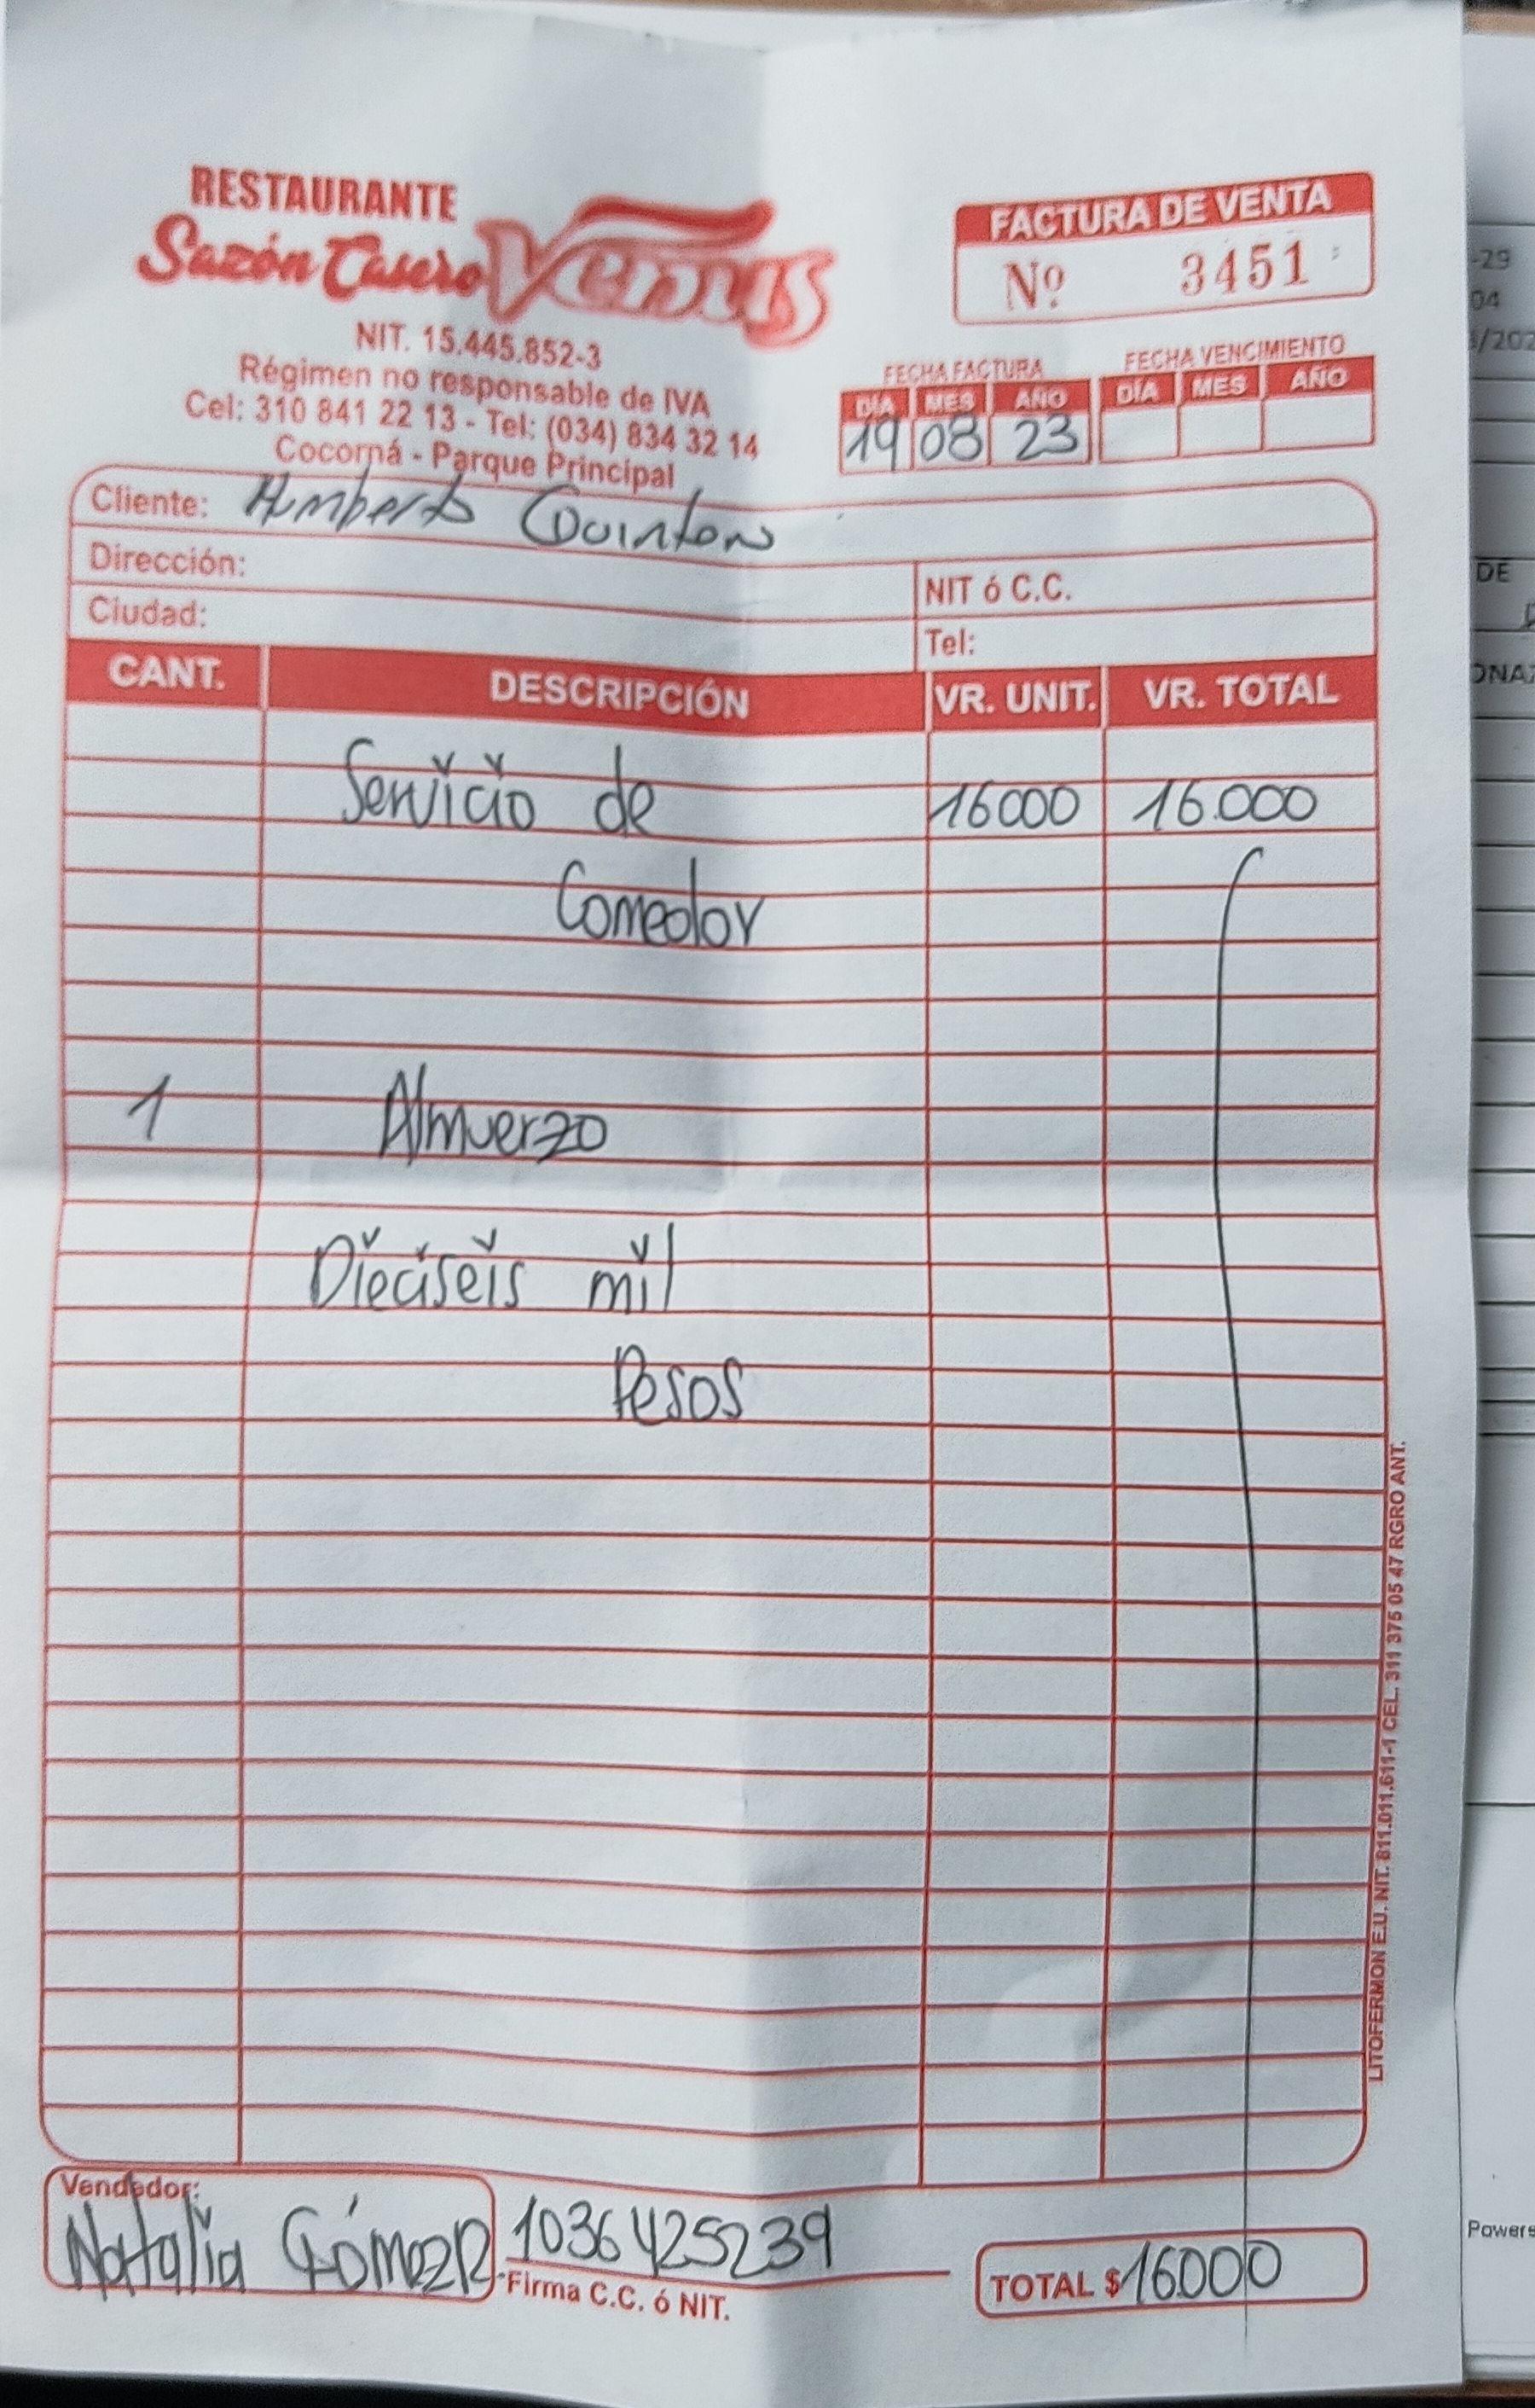 RESTAURANTE
Sazón Casero Venus
NIT. 15.445.852-3
Régimen no responsable de IVA
Cel: 310 841 22 13 - Tel: (034) 834 32 14
Cocorná - Parque Principal
FACTURA DE VENTA
Nº 3451
FECHA FACTURA FECHA VENCIMIENTO
DÍA MES AÑO DÍA MES AÑO
19 08 23
Cliente: Humberto
Dirección:
NIT ó C.C.
Ciudad:
Tel:
CANT. DESCRIPCIÓN VR. UNIT. VR. TOTAL
Servicio de 16000 16.000
Comedor
1 Almuerzo
Dieciseis mil
Pesos
LITOFERMON E.U. NIT. 811.011.611-1 CEL. 311 375 05 47 RGRO ANT.
Vendedor:
Natalia Gómez R 1036425239
Firma C.C. ó NIT.
TOTAL $16000
-29
04
/202
DE
Powere